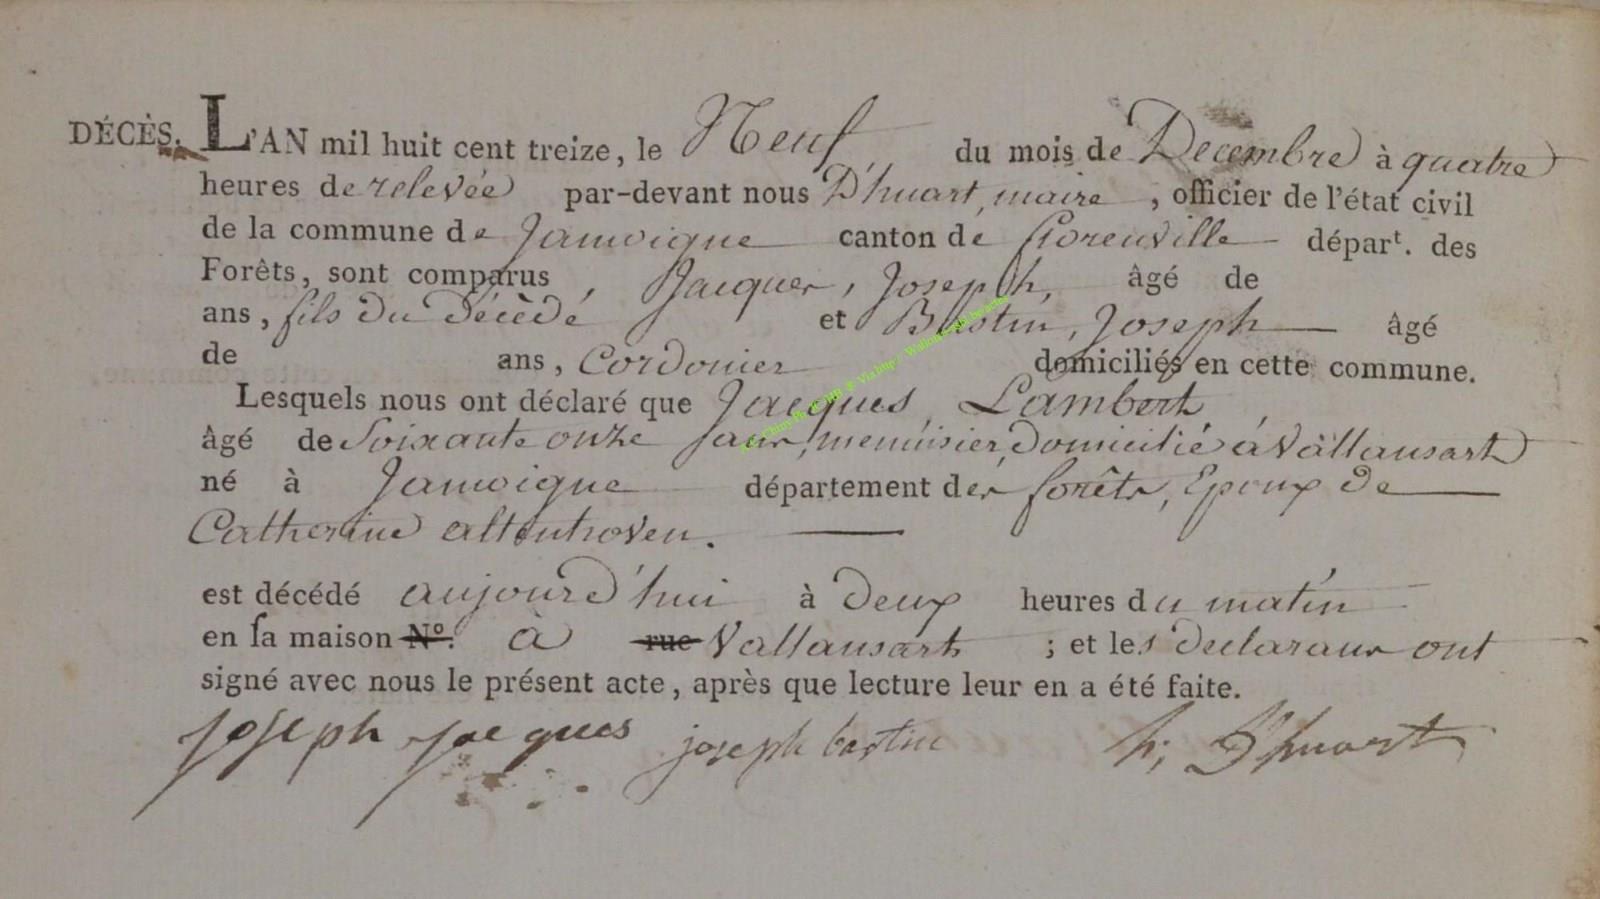 DÉCÈS. L'AN mil huit cent treize, le Neuf du mois de Decembre à quatre
heures de relevée par-devant nous D'huart, maire, officier de l'état civil
de la commune de Jamoigne canton de florenville départ. des
Forêts, sont comparus, Jacques, Joseph, âgé de
ans, fils du décédé et Bastin, Joseph âgé
de ans, Cordonier domiciliés en cette commune.
Lesquels nous ont déclaré que Jacques, Lambert,
âgé de Soixante onze ans, menuisier, domicilié à Vallansart
né à Jamoigne département des forêts, Epoux de
Catherine altenhoven.
est décédé aujourd'hui à deux heures du matin
en sa maison N°. à rue Vallansart ; et les declarans ont
signé avec nous le présent acte, après que lecture leur en a été faite.
joseph jacques joseph bastin h; D'huart